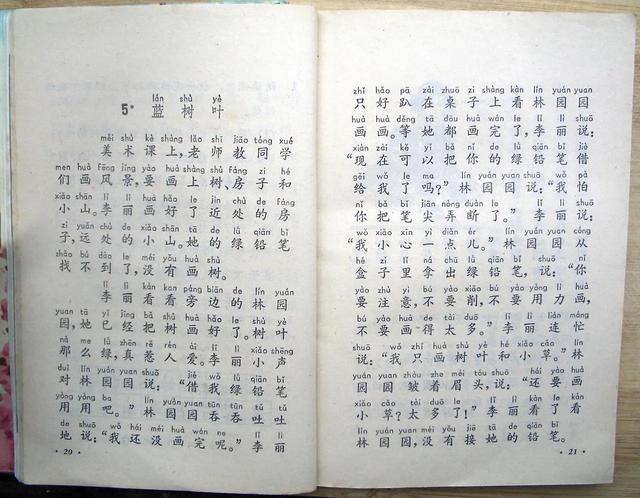 lán shù yè
5* 蓝树叶
měi shù kè shàng lǎo shī jiāo tóng xué
美术课上,老师教同学
men huà fēng jǐng yào huà shàng shù fáng zi hé
们画风景,要画上树、房子和
xiǎo shān lǐ lì huà hǎo le jìn chù de fáng
小山。李丽画好了近处的房
zi yuǎn chù de xiǎo shān tā de lǜ qiān bǐ
子,远处的小山。她的绿铅笔
zhǎo bú dào le méi yǒu huà shù
找不到了,没有画树。
lǐ lì kàn kan páng biān de lín yuán
李丽看看旁边的林园
yuan tā yǐ jīng bǎ shù huà hǎo le shù yè
园,她已经把树画好了。树叶
nà me lǜ zhēn rě rén ài lǐ lì xiǎo shēng
那么绿,真惹人爱。李丽小声
duì lín yuán yuan shuō jiè wǒ lǜ qiān bǐ
对林园园说:“借我绿铅笔
yòng yòng ba lín yuán yuan tūn tūn tǔ tǔ
用用吧。”林园园吞吞吐吐
de shuō wǒ hái méi huà wán ne lǐ lì
地说:“我还没画完呢。”李丽
·20·
zhǐ hǎo pā zài zhuō zi shàng kàn lín yuán yuan
只好趴在桌子上看林园园
huà huà děng tā dōu huà wán le lǐ lì shuō
画画。等她都画完了,李丽说:
xiàn zài kě yǐ bǎ nǐ de lǜ qiān bǐ jiè
“现在可以把你的绿铅笔借
gěi wǒ le ma lín yuán yuan shuō wǒ pà
给我了吗?”林园园说:“我怕
nǐ bǎ bǐ jiān nòng duàn le lǐ lì shuō
你把笔尖弄断了。”李丽说:
wǒ xiǎo xin yì diǎn ér lín yuán yuan cóng
“我小心一点儿。”林园园从
hé zi lǐ ná chū lǜ qiān bǐ shuō nǐ
盒子里拿出绿铅笔,说:“你
yào zhù yì bú yào xiāo bú yào yòng lì huà
要注意,不要削,不要用力画,
bú yào huà de tài duō lǐ lì lián máng
不要画得太多。”李丽连忙
shuō wǒ zhǐ huà shù yè hé xiǎo cǎo lín
说:“我只画树叶和小草。”林
yuán yuan zhòu zhe méi tóu shuō hái yào huà
园园皱着眉头,说:“还要画
xiǎo cǎo tài duō le lǐ lì kàn le kàn
小草?太多了!”李丽看了看
lín yuán yuan méi yǒu jiē tā de qiān bǐ
林园园,没有接她的铅笔。
·21·